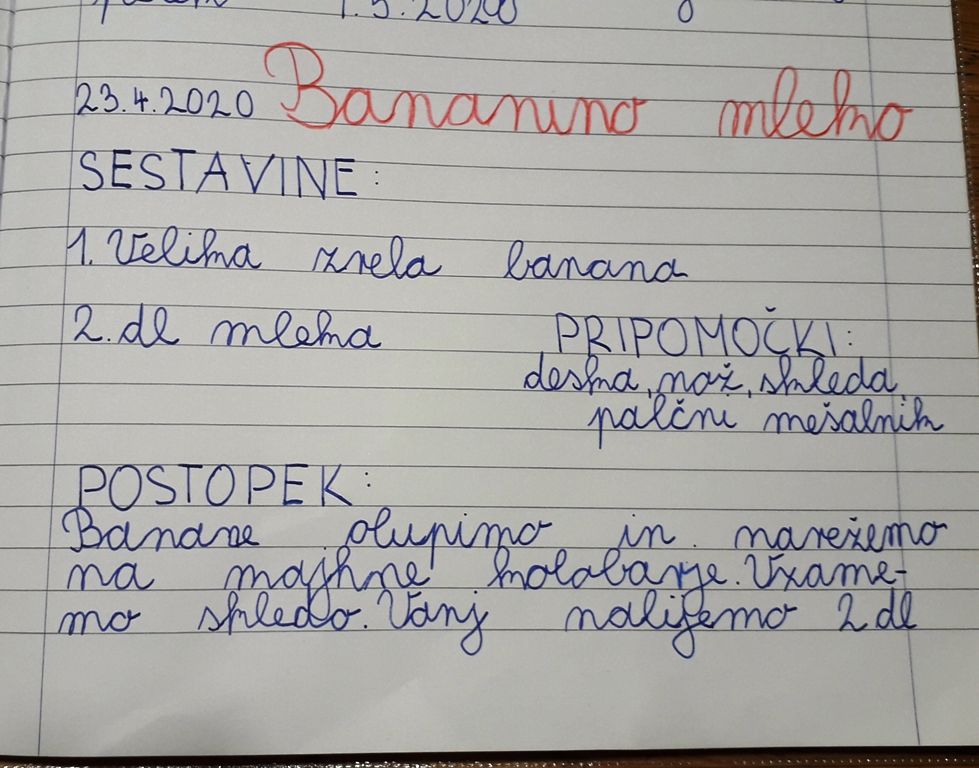 1.5.2020
23.4.2020 Bananino mleko
SESTAVINE:
1. Velika zrela banana
2. dl mleka
PRIPOMOČKI:
deska, nož, skleda,
palčni mešalnik
POSTOPEK:
Banane olupimo in narežemo
na majhne kolobarje. Vzame-
mo skledo. Vanj nalijemo 2 dl